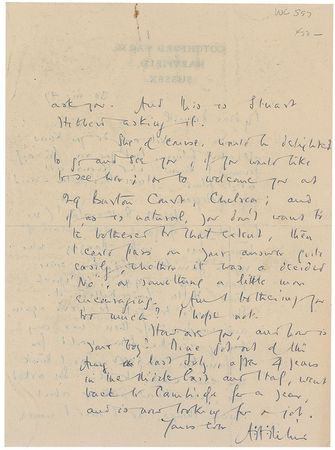 WG 557
COTCHFORD FARM,
HARTFIELD,
SUSSEX.
ask you. And this is Stuart
Hibberd asking it.
She, of course, would be delighted
to go and see you, if you would like
to see her; or to welcome you at
29 Burton Court, Chelsea; and
if, as is natural, you don't want to
be bothered to that extent, then
I could pass on your answer quite
easily, whether it was a decided
No, or something a little more
encouraging. Am I bothering you
too much? I hope not.
How are you, and how is
your boy? Mine got out of the
Army last July, after 4 years
in the Middle East and Italy, went
back to Cambridge for a year,
and is now looking for a job.
Yours ever
A.A. Milne